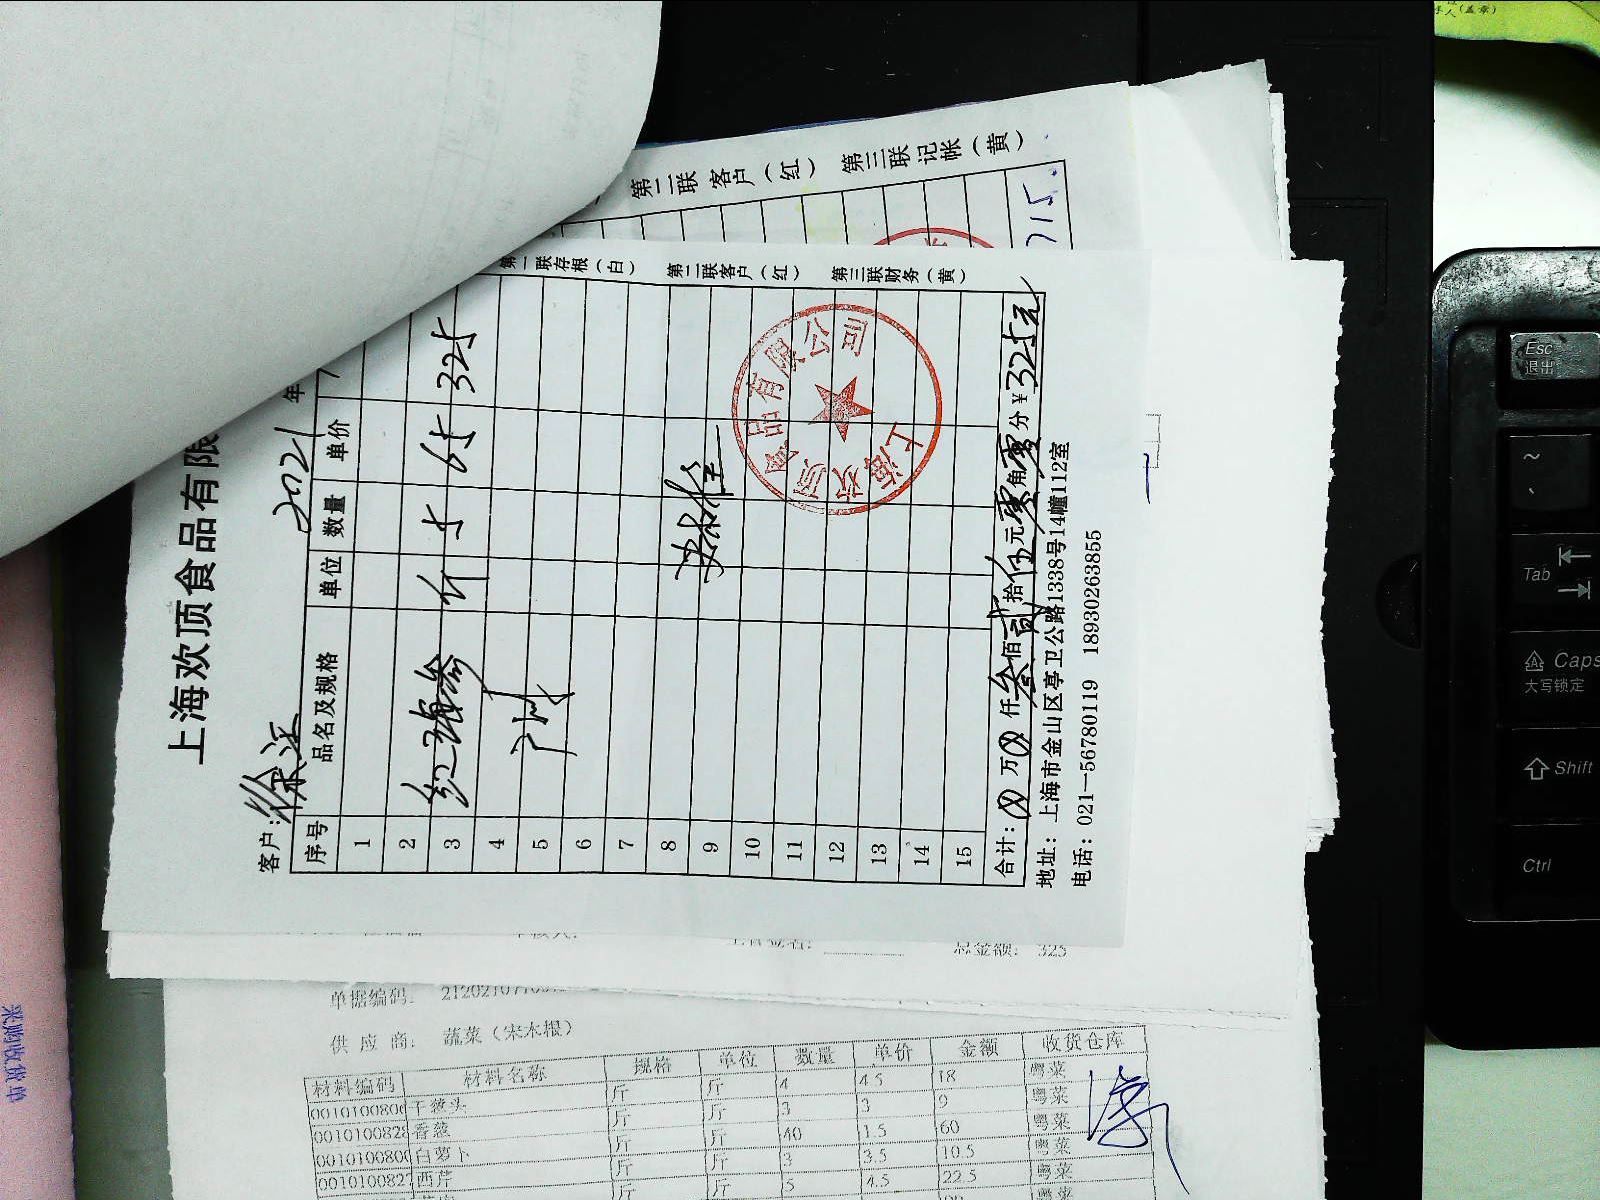 上海欢顶食品有限
客户:徐汇
2021 年
序号 品名及规格 单位 数量 单价
1
2
3 红瑞参 斤 5 65 325
4
5
6
7
8
9
10
11
12
13
14
15
合计: 万 仟叁佰贰拾伍元零角零分 ¥325元
地址: 上海市金山区亭卫公路1338号14幢112室
电话: 021—56780119 18930263855
第一联存根(白) 第二联客户(红) 第三联财务(黄)
上海欢顶食品有限公司
第二联 客户(红) 第三联 记帐(黄)
715.
总金额: 325
单据编码:
供 应 商: 蔬菜(宋木根)
材料编码 材料名称 规格 单位 数量 单价 金额 收货仓库
干葱头 斤 斤 4 4.5 18 粤菜
香葱 斤 斤 3 3 9 粤菜
白萝卜 斤 斤 40 1.5 60 粤菜
西芹 斤 斤 3 3.5 10.5 粤菜
斤 斤 5 4.5 22.5 粤菜
采购收货单
人(盖章)
Esc
退出
~
Tab
Caps
大写锁定
Shift
Ctrl